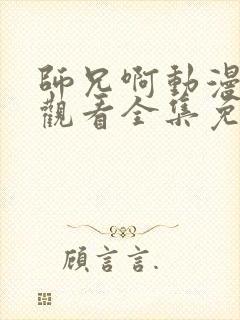 師兄啊動漫
觀看全集免
顧言言.